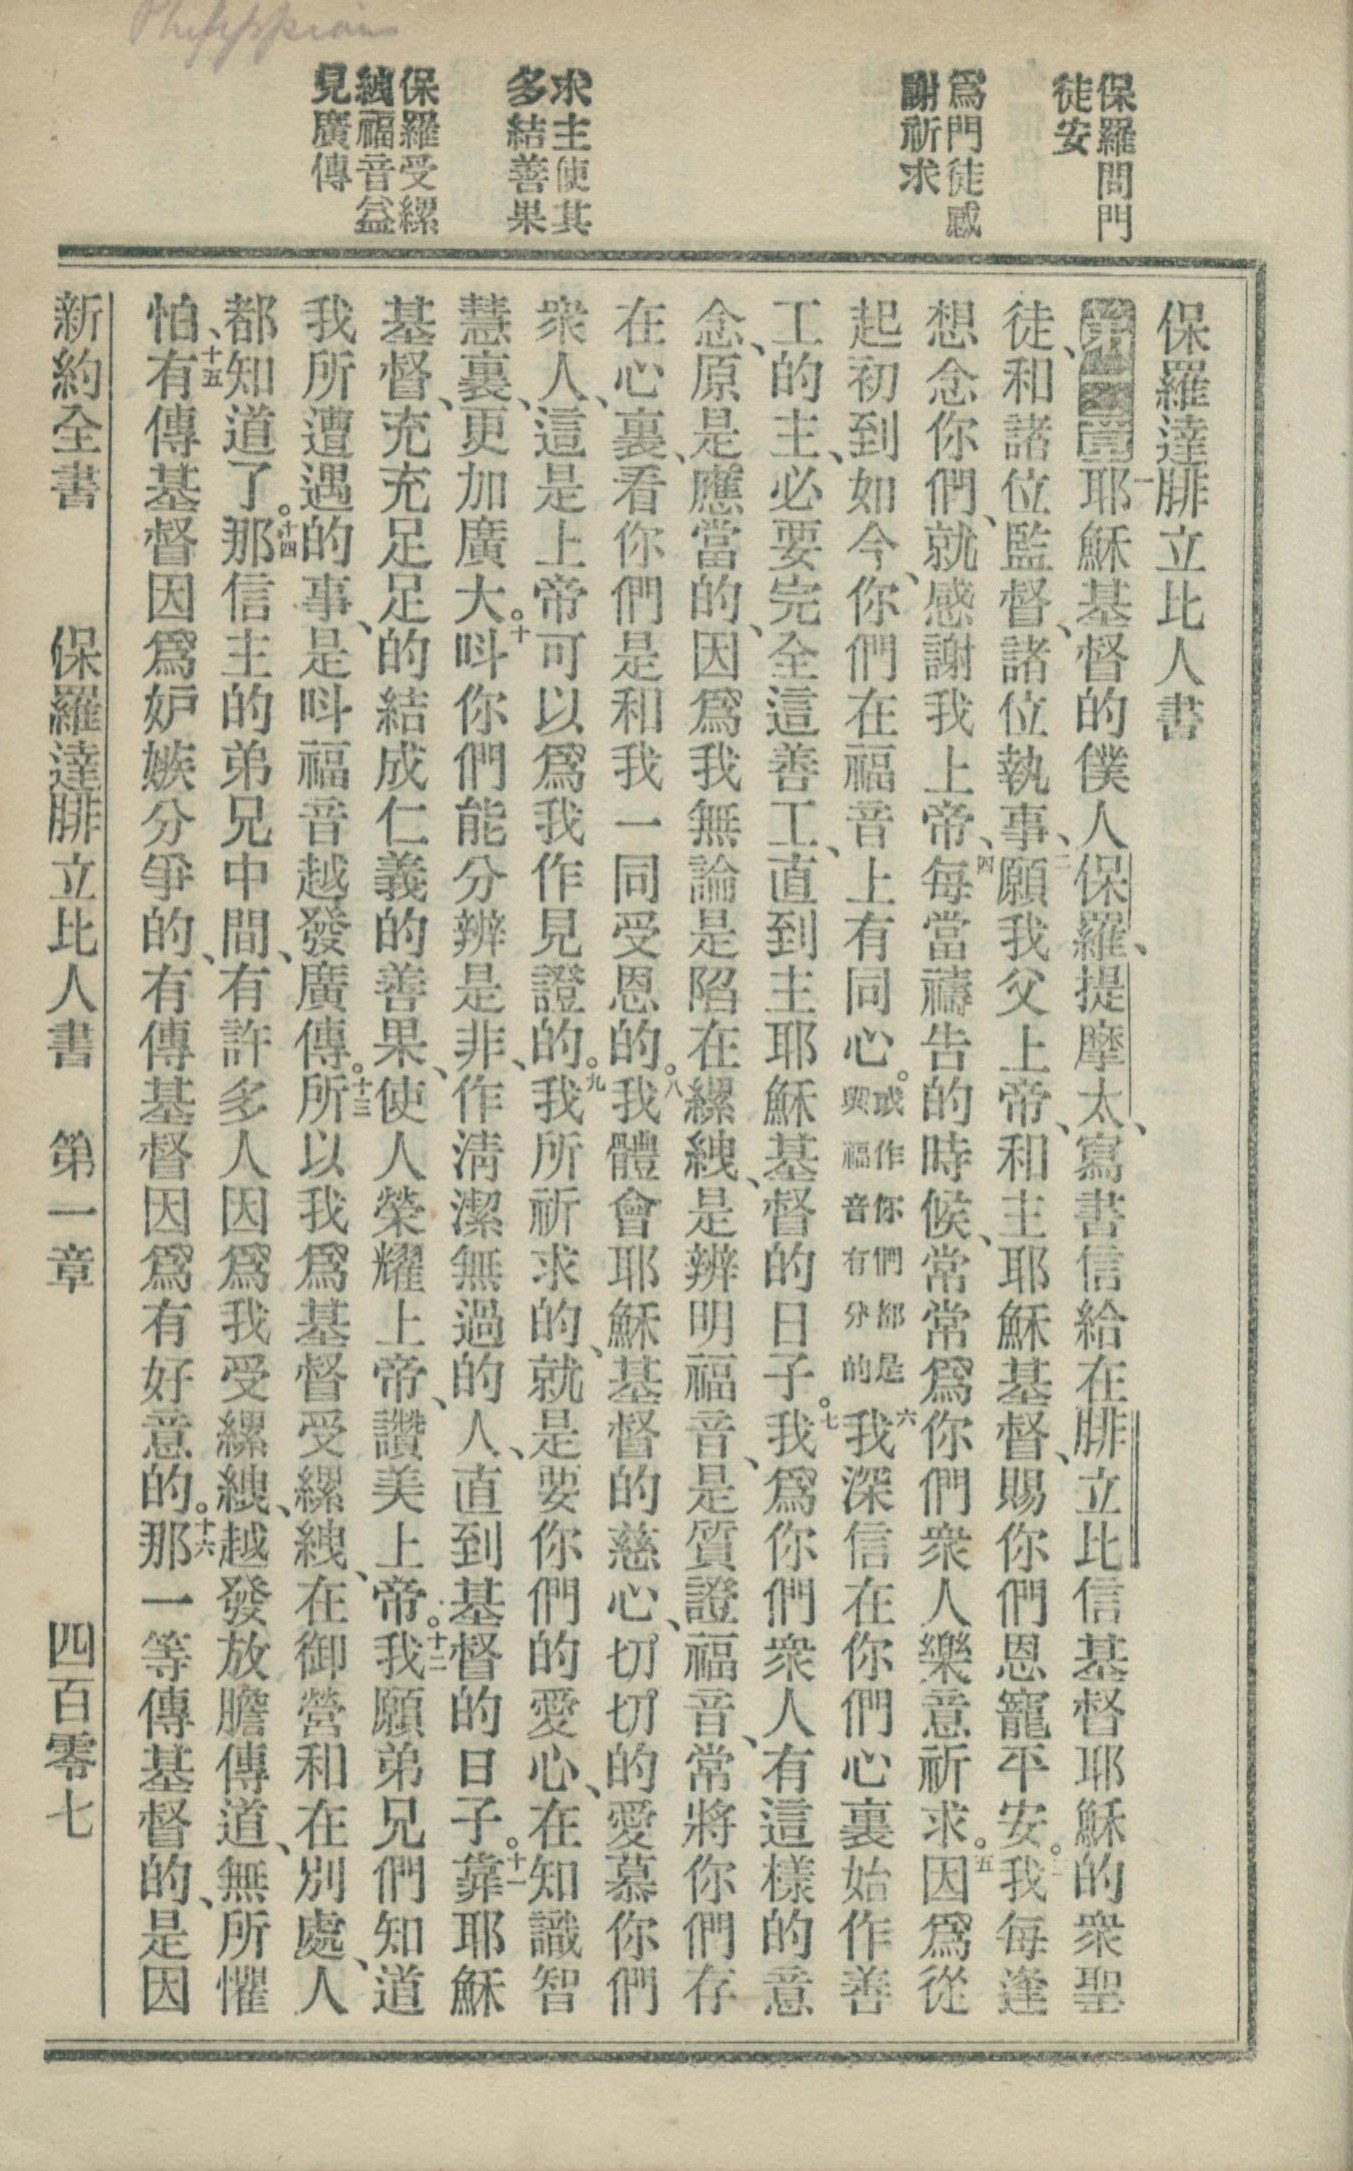 Philippians
保羅問門
徒安
爲門徒感
謝祈求
求主使其
多結善果
保羅受縲
絏福音益
見廣傳
保羅達腓立比人書
第一章一耶穌基督的僕人保羅、提摩太、寫書信給在腓立比信基督耶穌的衆聖
徒、和諸位監督、諸位執事、二願我父上帝、和主耶穌基督、賜你們恩寵平安。三我每逢
想念你們、就感謝我上帝、四每當禱告的時候、常常爲你們衆人樂意祈求。五因爲從
起初到如今、你們在福音上有同心。或作你們都是與福音有分的六我深信在你們心裏始作善
工的主、必要完全這善工、直到主耶穌基督的日子。七我爲你們衆人有這樣的意
念、原是應當的、因爲我無論是陷在縲絏、是辨明福音、是質證福音、常將你們存
在心裏、看你們是和我一同受恩的。八我體會耶穌基督的慈心、切切的愛慕你們
衆人、這是上帝可以爲我作見證的。九我所祈求的、就是要你們的愛心、在知識智
慧裏、更加廣大。十呌你們能分辨是非、作淸潔無過的人、直到基督的日子。十一靠耶穌
基督、充充足足的結成仁義的善果、使人榮耀上帝、讚美上帝。十二我願弟兄們知道
我所遭遇的事、是呌福音越發廣傳。十三所以我爲基督受縲絏、在御營和在別處、人
都知道了。十四那信主的弟兄中間、有許多人因爲我受縲絏、越發放膽傳道、無所懼
怕、十五有傳基督因爲妒嫉分爭的、有傳基督因爲有好意的。十六那一等傳基督的、是因
新約全書　保羅達腓立比人書　第一章　四百零七